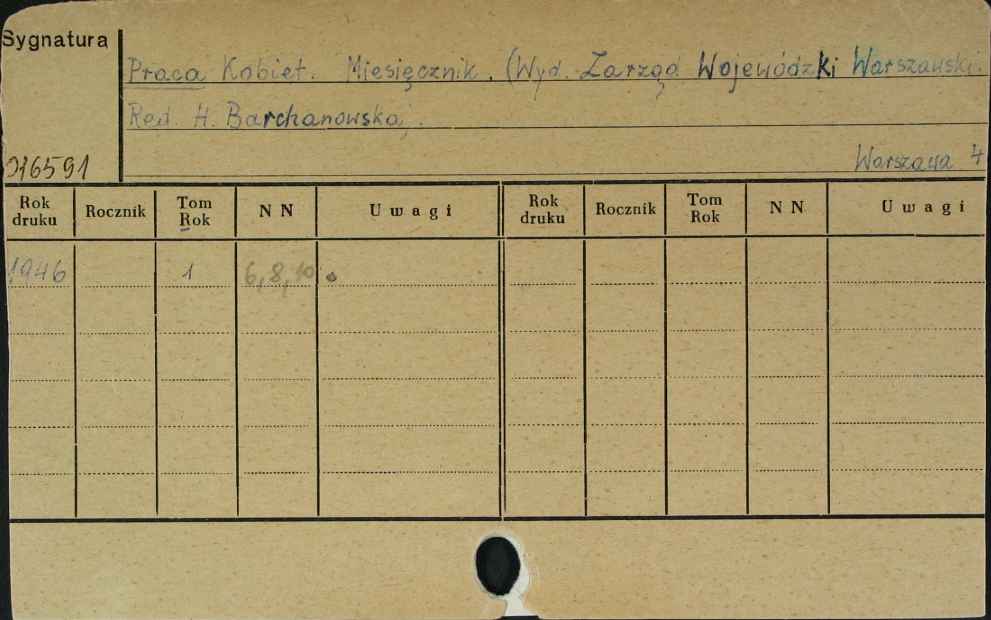 Sygnatura
Praca Kobiet. Miesięcznik. (Wyd. Zarząd Wojewódzki Warszawski.
Red. H. Barchanowska).
Warszawa 4
016591
Rok druku Rocznik Tom Rok NN Uwagi Rok druku Rocznik Tom Rok NN Uwagi
1946 1 6, 8, 10